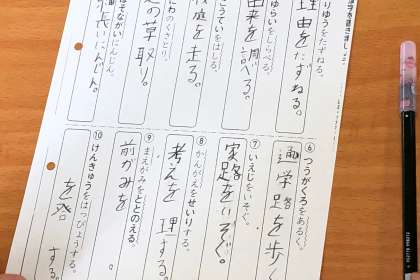 りゆうをたずねる。
理由をたずねる。
ゆらいをしらべる。
由来を調べる。
こうていをはしる。
校庭を走る。
にわのくさとり。
の草取り。
長いにんじん。
⑥ つうがくろをあるく。
通学路を歩く
⑦ いえじをいそぐ。
家路をいそぐ。
⑧ かんがえをせいりする。
考えを 理する。
⑨ まえがみをととのえる。
前がみを 。
⑩ けんきゅうをはっぴょうする。
を発 する。